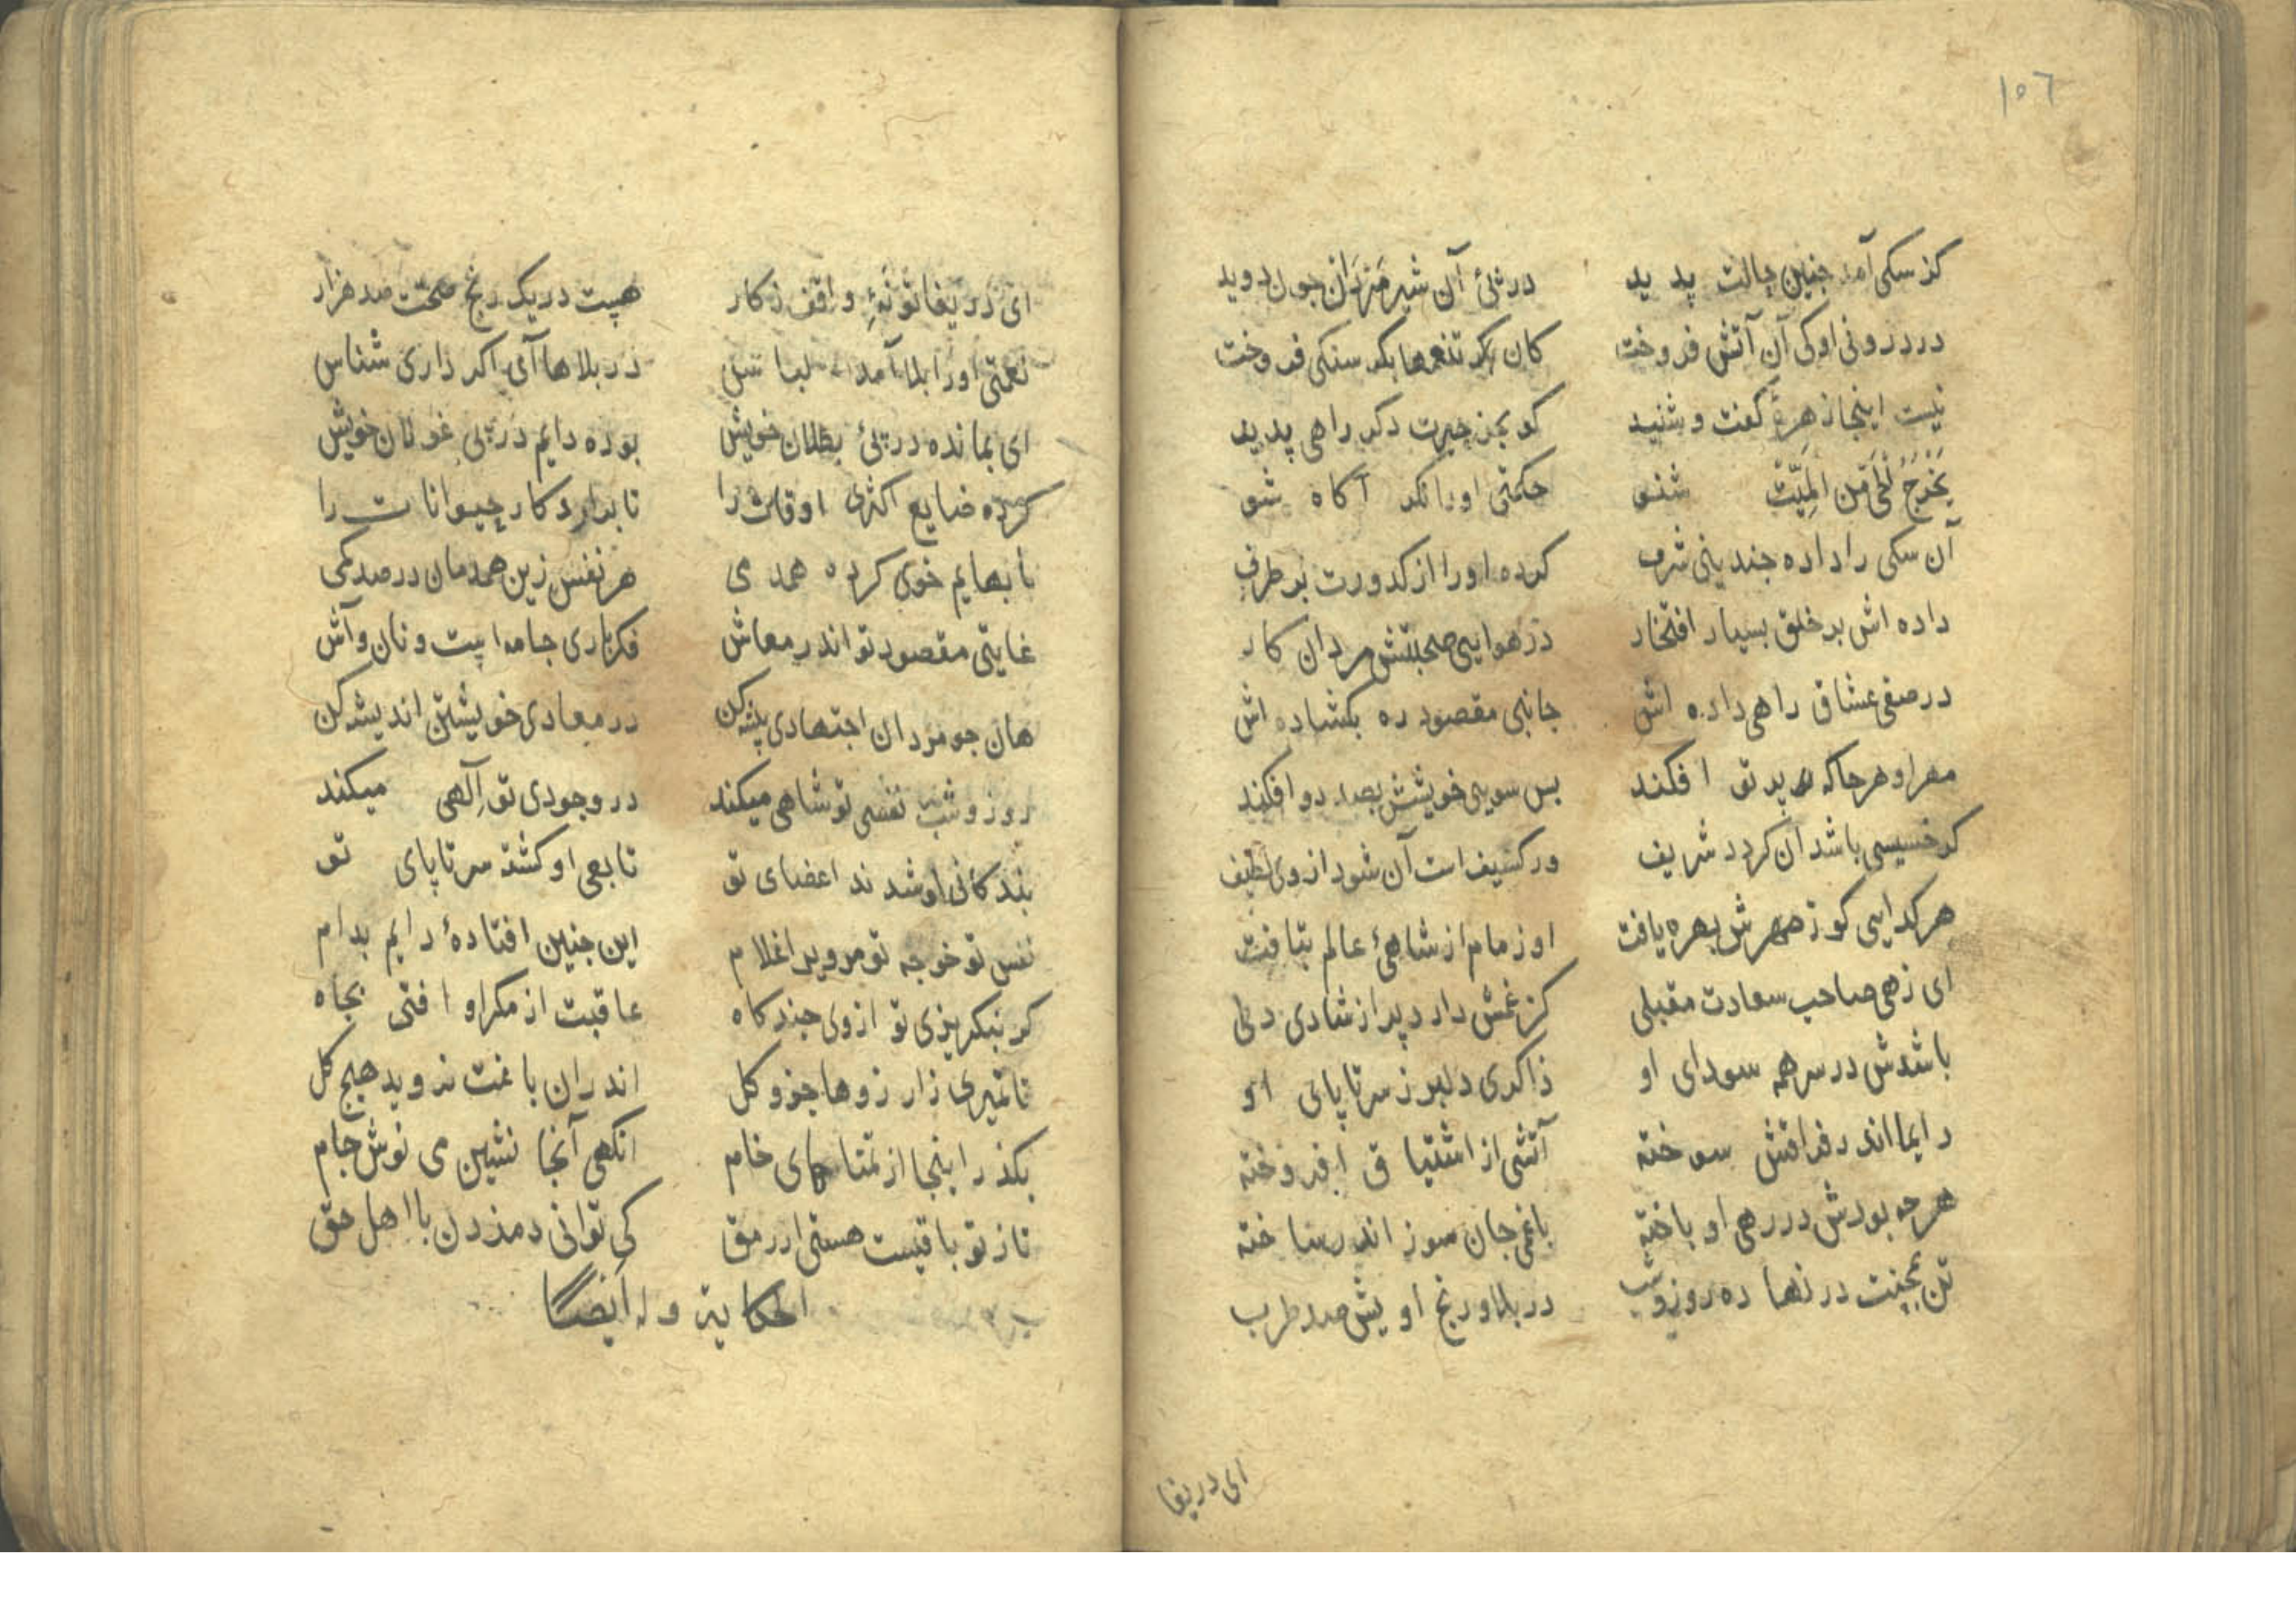 ١٥٦
کز سکی آمد جنین حالت پدید در پئ آن شیر مردان جون دوید
در درونی او کی آن آتش فروخت کان بکر تنعمها بکر سنکی فروخت
نیست اینجا زهرۀ کفت و شنید کو بجز حیرت دکر راهی پدید
یخرج الحی من المیت شنو حکمتی او را نکر آکاه شو
آن سکی را داده جندینی شرف کرده او را از کدورت بر طرف
داده اش بر خلق بسیار افتخار در هوایی صحبتش مردان کار
در صفی عشاق راهی داده اش جانبی مقصود ره بکشاده اش
مهر او هر جا که پرتو افکند بس سویی خویشش بصد دو افکند
کر خسیسی باشد آن کردد شریف ور کثیف است آن شود از وی لطیف
هر کدایی کو ز مهرش بهره یافت او زمام از شاهئ عالم بتافت
ای زهی صاحب سعادت مقبلی کز غمش دارد پر از شادی دلی
باشدش در سر همه سودای او ذاکری دلبر ز سر تا پای او
دایما اندر فراقش سوخته آتشی از اشتیاق افروخته
هر جه بودش در رهی او باخته با غمی جان سوز اندر ساخته
تن بمحنت در نهاده روز و شب در بلا و رنج اویش صد طرب
ای دریغا
ای دریغا تو نۀ واقف ز کار هیست در یک رنج صحت صد هزار
نعمتی او را بلا آمد لباس در بلاها آی اکر داری شناس
ای بمانده در پئ بطلان خویش بوده دایم در پی غولان خویش
کرده ضایع اکثری اوقات را تا بدارد کار حیوانات را
با بهایم خوی کرده همدمی هر نفس زین همدمان در صد کمی
غایتی مقصود تو اندر معاش فکر تاری جامه است و نان و آش
هان جو مردان اجتهادی پیشه کن در معادی خویشتن اندیشه کن
روز و شب نفسی تو شاهی میکند در وجودی تو الهی میکند
بندکانی او شدند اعضای تو تابعی او کشته سر تا پای تو
نفس تو خوجه تو مر ویرا غلام این جنین افتادۀ دایم بدام
کر نبکریزی تو از وی جند کاه عاقبت از مکر او افتی بجاه
تا نمیری ز ارزوها جزو کل اندران باغت نروید هیج کل
بکذر اینجا از تمناهای خام انکهی آنجا نشین می نوش جام
تا ز تو باقیست هستی ار رمق کی توانی دم زدن با اهل حق
الحکایة وله ایضا